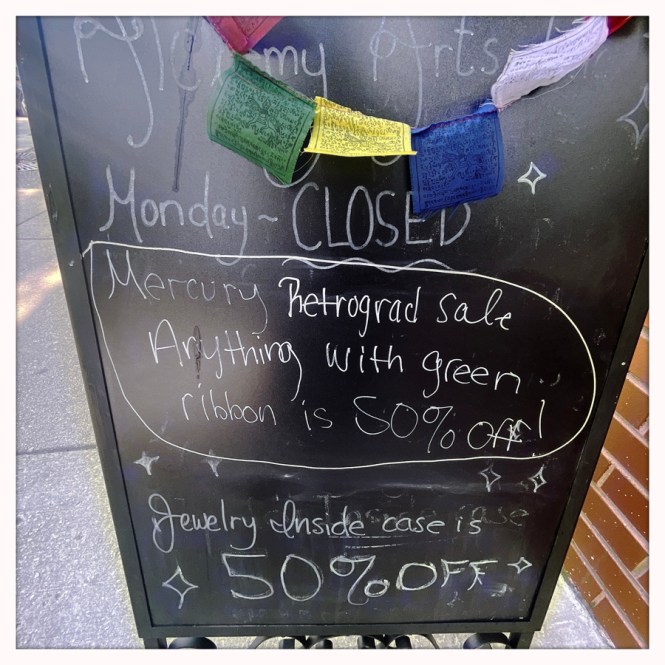 Alchemy Arts
Monday ~ CLOSED
Mercury Retrograd sale
Anything with green
ribbon is 50% off!
Jewelry Inside case is
50% OFF